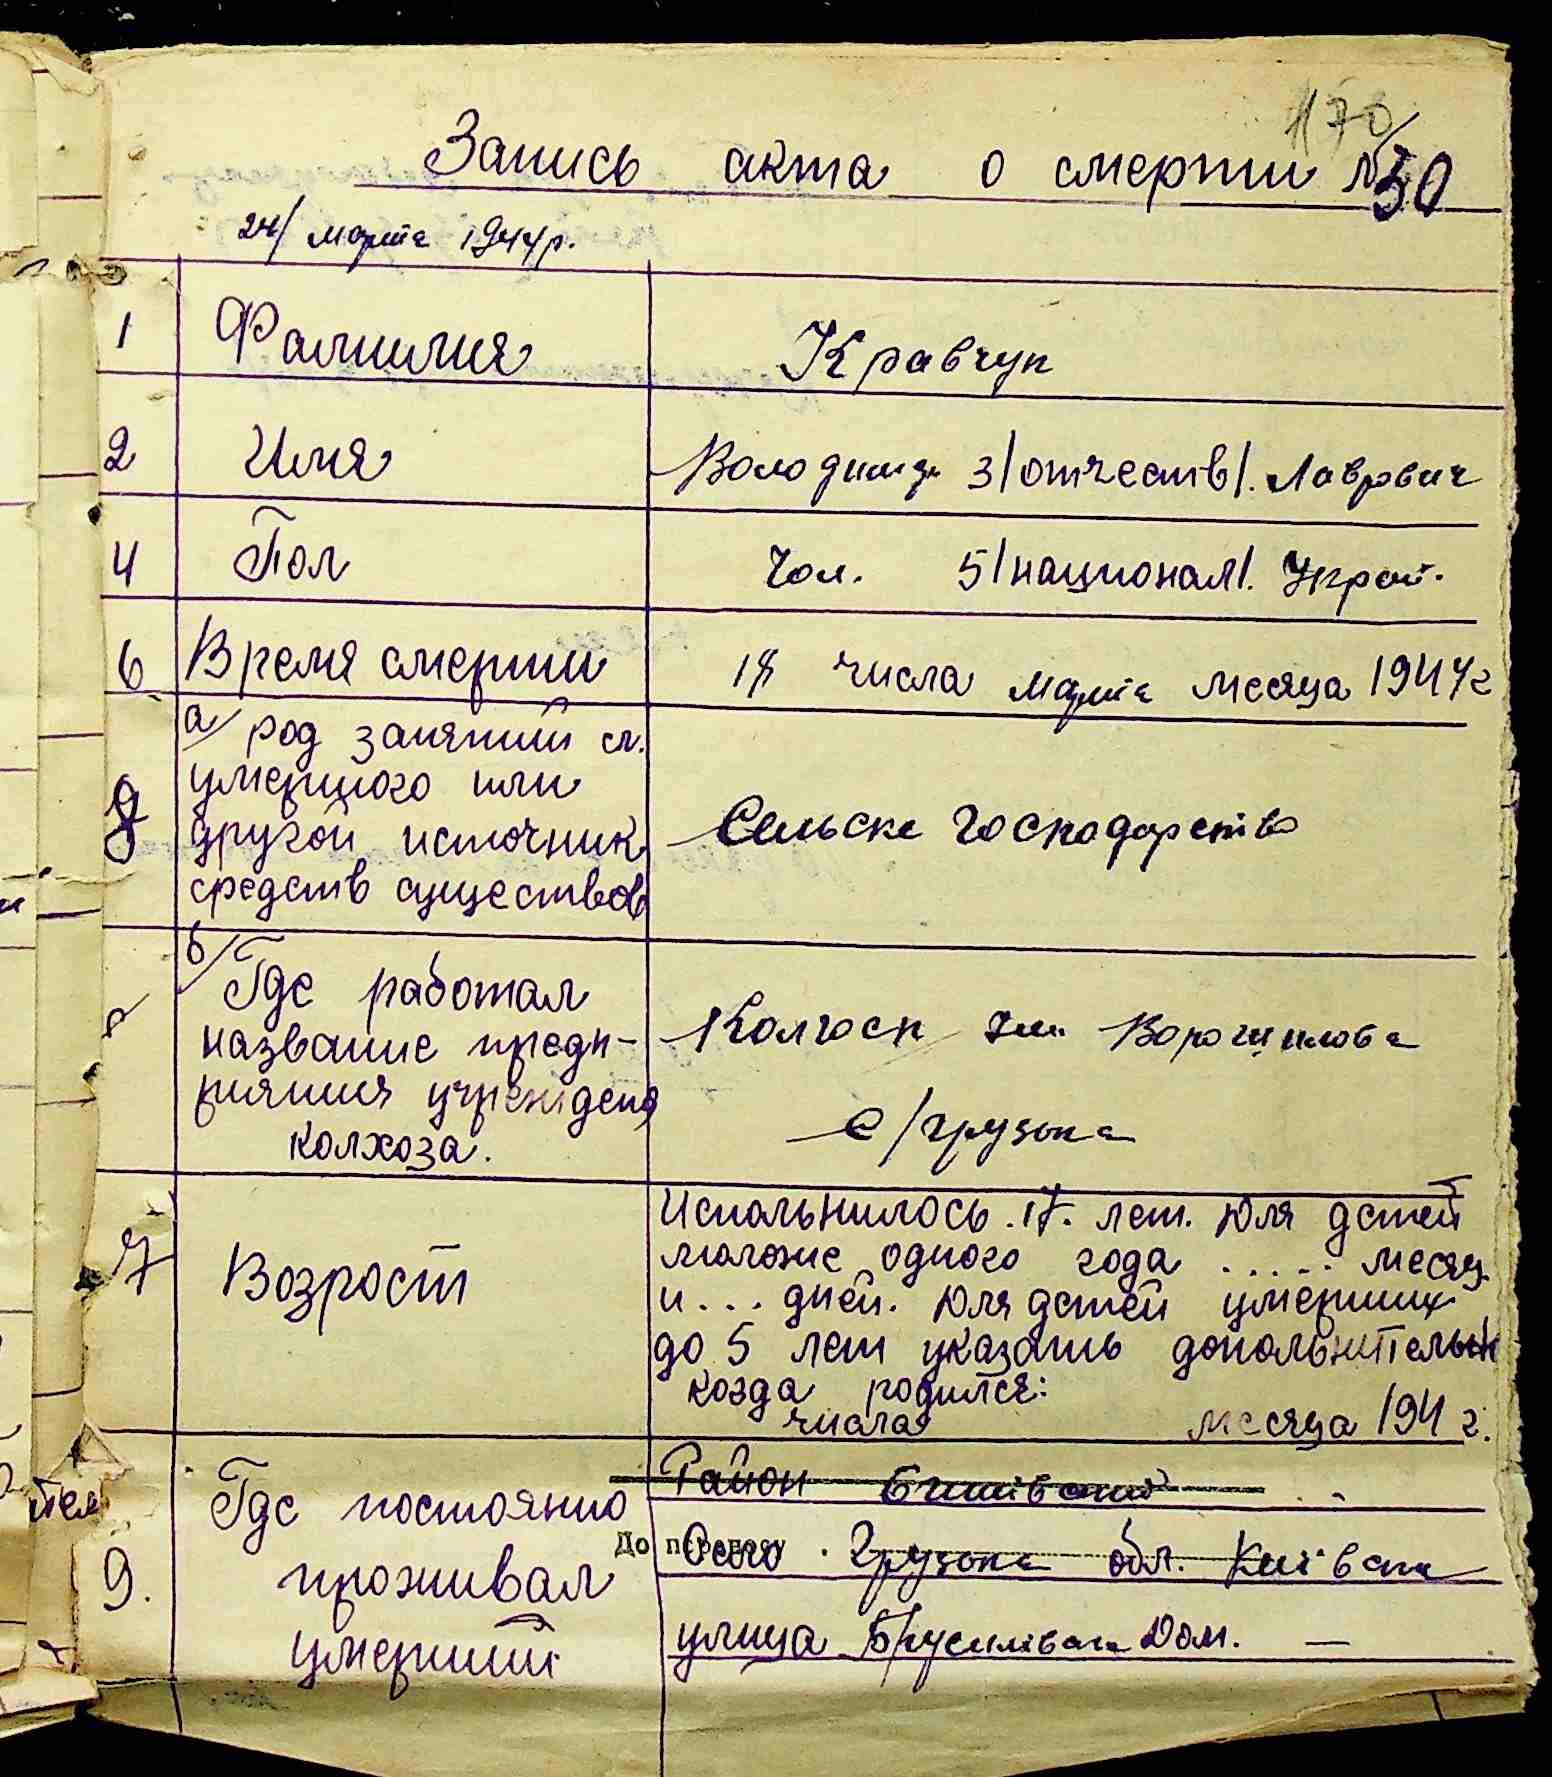 1170
Запись акта о смерти №50
24/ марта 1944р.
1 Фамилия Кравчук
2 Имя Володимир 3/отчеств/. Лаврович
4 Пол Чол. 5/национал/. Украї.
6 Время смерти 18 числа марта месяца 1944г
8 а/ род занятий сл.
умершого или
другой источник
средств существов
Сельске господарство
б/ Где работал
название предп-
рияния учрежден
колхоза.
Колгосп Им. Ворошилова
с/Грузька
7 Возрост
Испольнилось .17. лет. Для детей
моложе одного года ..... месяц
и ... дней. Для детей умерших
до 5 лет указать допольнительн
когда родился:
числа месяца 194 г.
9. Где постоянно
проживал
умерший
Район
До переносу
Село Грузька обл. Київська
улица Брусилівська Дом. —
тел